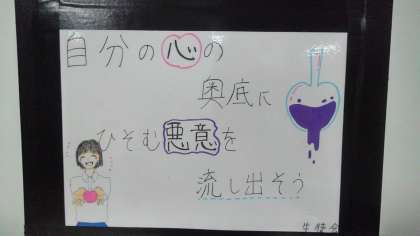 自分の心の
奥底に
ひそむ悪意を
流し出そう
生徒会